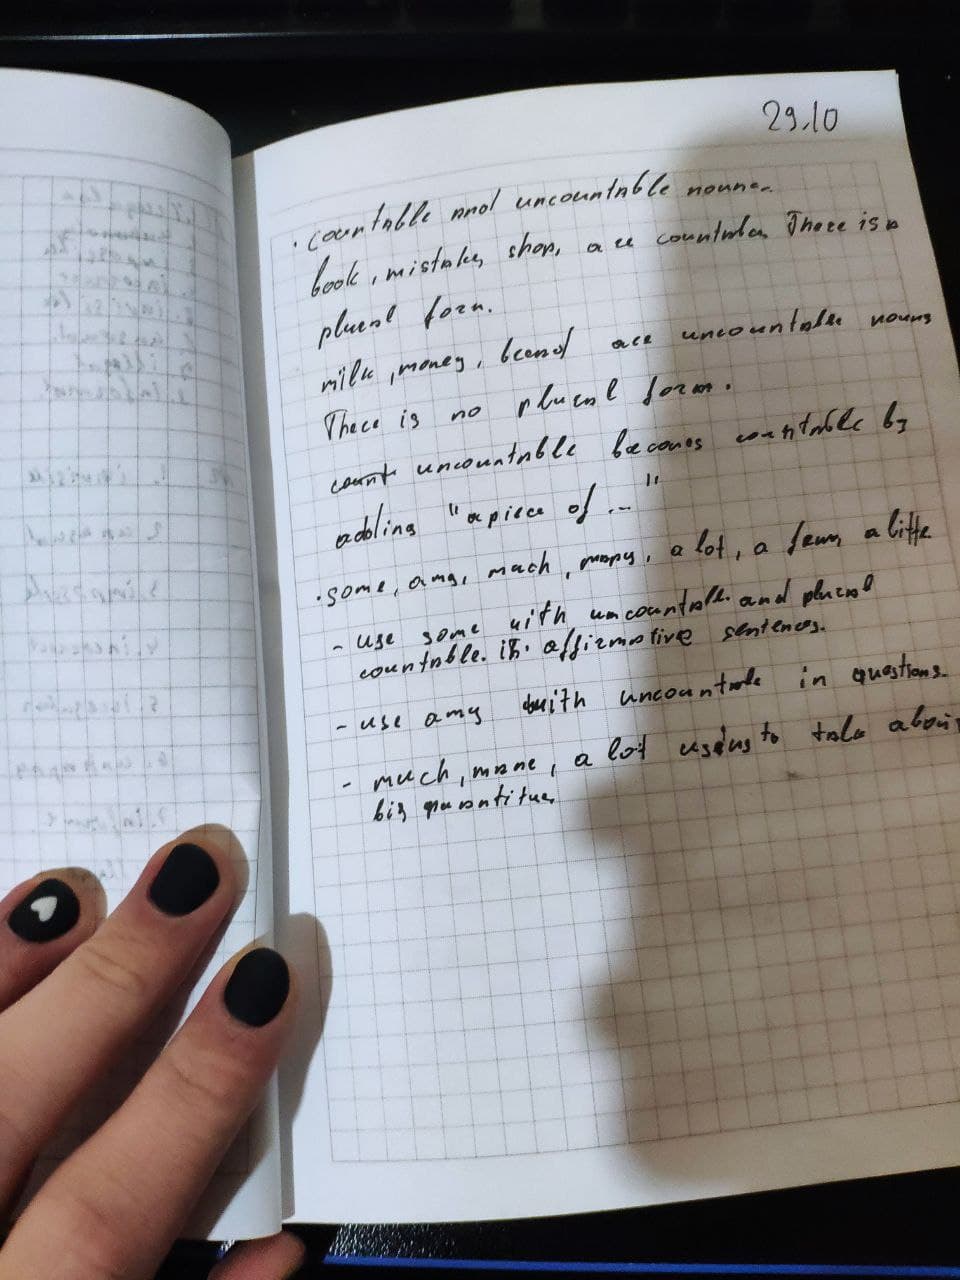 29.10
· countable and uncountable nouns.
book, mistake, shop, are countable. There is a
plural form.
milk, money, bread are uncountable nouns
There is no plural form.
uncountable becomes countable by
adding "a piece of ... "
· some, any, much, many, a lot, a few, a little
- use some with uncountable and plural
countable. in affirmative sentences.
- use any with uncountable in questions.
- much, many, a lot using to talk about
big quantity